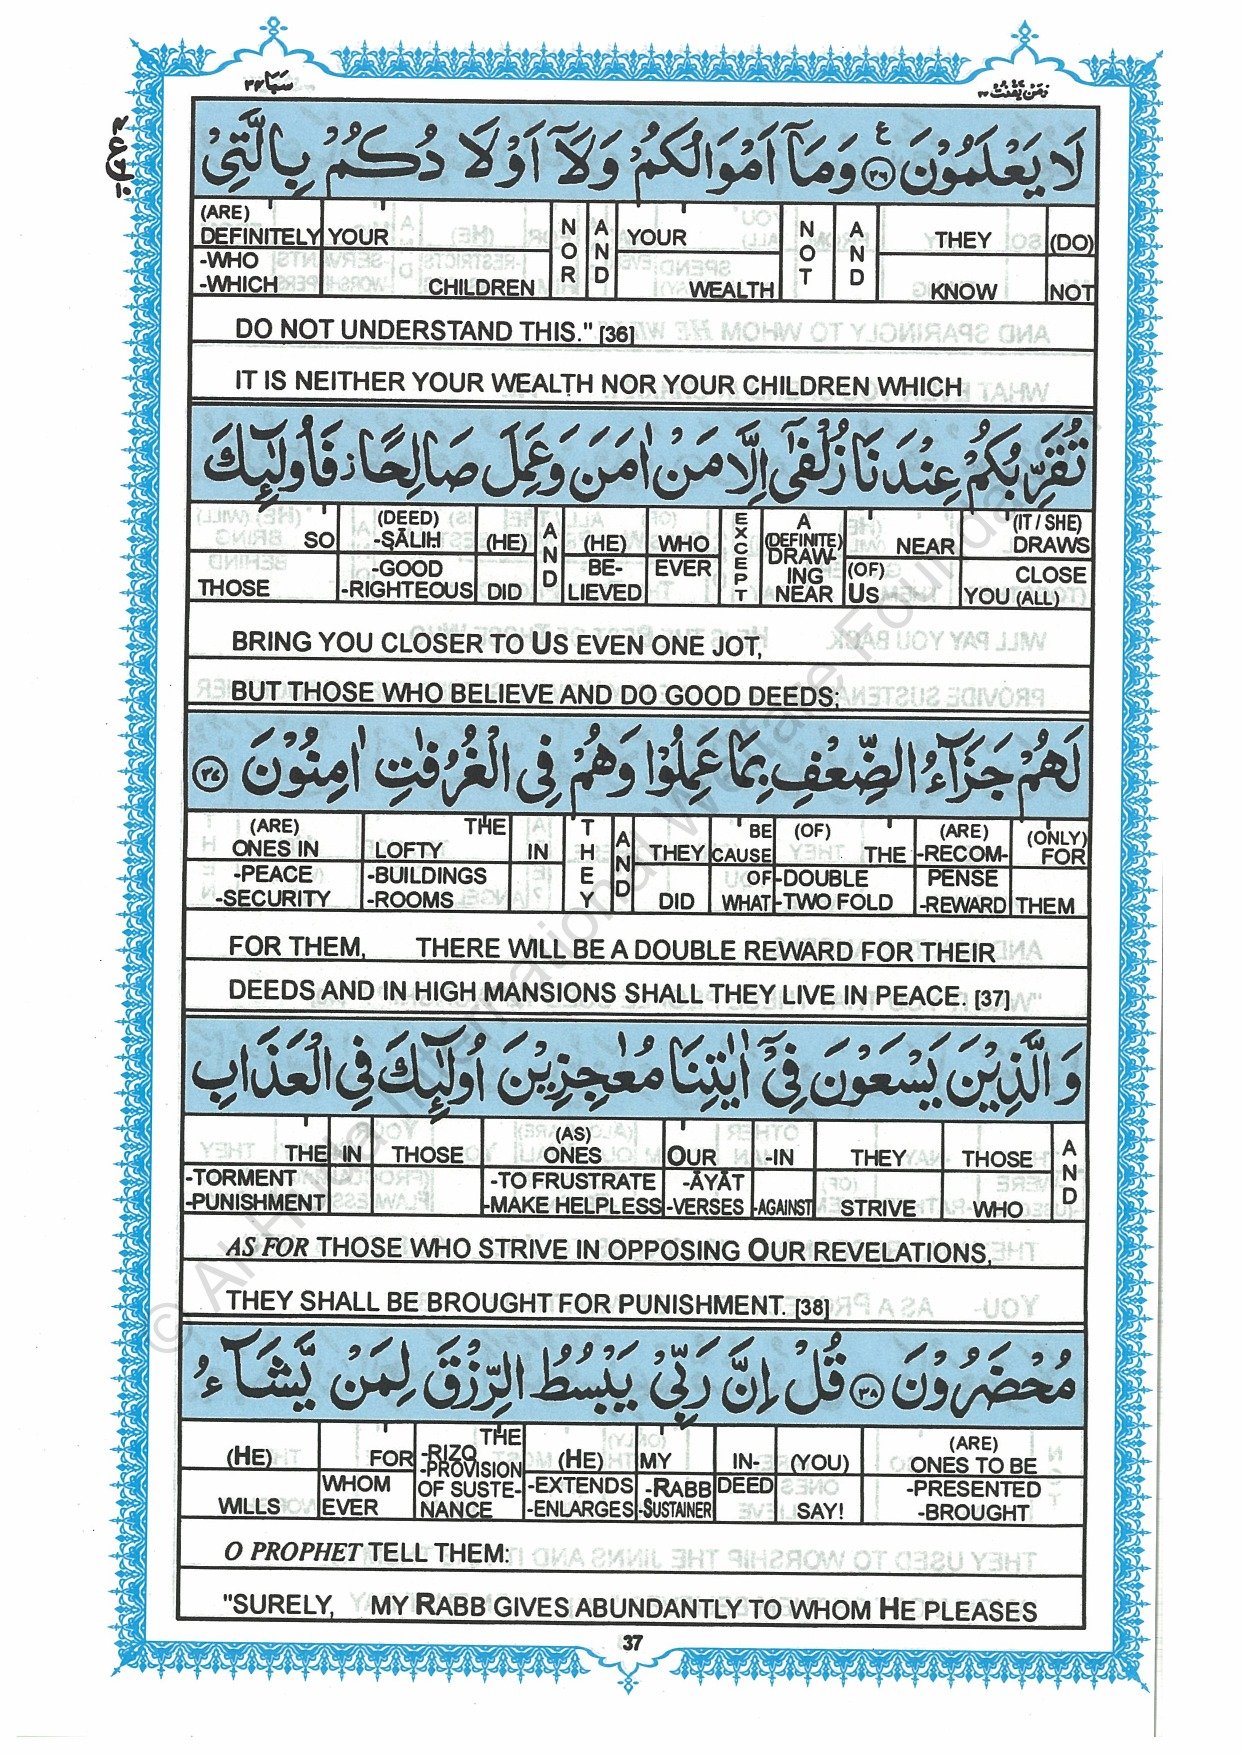 سَبَا ٣٤
وَمَنْ يَّقْنُتْ ٢٢
لَا يَعْلَمُوْنَ ﴿٣٦﴾ وَمَآ اَمْوَالُكُمْ وَلَآ اَوْلَا دُكُمْ بِالَّتِيْ
(ARE) DEFINITELY -WHO -WHICH | YOUR CHILDREN | NOR | AND | YOUR WEALTH | NOT | AND | THEY KNOW | (DO) NOT
DO NOT UNDERSTAND THIS." [36]
IT IS NEITHER YOUR WEALTH NOR YOUR CHILDREN WHICH
تُقَرِّبُكُمْ عِنْدَنَا زُلْفٰٓى اِلَّا مَنْ اٰمَنَ وَعَمِلَ صَالِحًا ز فَاُولٰٓئِكَ
SO THOSE | (DEED) -ṢĀLIḤ -GOOD -RIGHTEOUS | (HE) DID | AND | (HE) BE- LIEVED | WHO EVER | EXCEPT | A (DEFINITE) DRAW- ING NEAR | NEAR (OF) US | (IT / SHE) DRAWS CLOSE YOU (ALL)
BRING YOU CLOSER TO US EVEN ONE JOT,
BUT THOSE WHO BELIEVE AND DO GOOD DEEDS;
لَهُمْ جَزَآءُ الضِّعْفِ بِمَا عَمِلُوْا وَهُمْ فِى الْغُرُفٰتِ اٰمِنُوْنَ ﴿٣٧﴾
(ARE) ONES IN -PEACE -SECURITY | THE LOFTY -BUILDINGS -ROOMS | IN | THEY | AND | THEY DID | BE CAUSE OF WHAT | (OF) THE -DOUBLE -TWO FOLD | (ARE) -RECOM- PENSE -REWARD | (ONLY) FOR THEM
FOR THEM, THERE WILL BE A DOUBLE REWARD FOR THEIR
DEEDS AND IN HIGH MANSIONS SHALL THEY LIVE IN PEACE. [37]
وَالَّذِيْنَ يَسْعَوْنَ فِيْٓ اٰيٰتِنَا مُعٰجِزِيْنَ اُولٰٓئِكَ فِى الْعَذَابِ
THE -TORMENT -PUNISHMENT | IN | THOSE | (AS) ONES -TO FRUSTRATE -MAKE HELPLESS | OUR -ĀYĀT -VERSES | -IN -AGAINST | THEY STRIVE | THOSE WHO | AND
AS FOR THOSE WHO STRIVE IN OPPOSING OUR REVELATIONS,
THEY SHALL BE BROUGHT FOR PUNISHMENT. [38]
مُحْضَرُوْنَ ﴿٣٨﴾ قُلْ اِنَّ رَبِّيْ يَبْسُطُ الرِّزْقَ لِمَنْ يَّشَآءُ
(HE) WILLS | FOR WHOM EVER | THE -RIZQ -PROVISION OF SUSTE- NANCE | (HE) -EXTENDS -ENLARGES | MY -RABB -SUSTAINER | IN- DEED | (YOU) SAY! | (ARE) ONES TO BE -PRESENTED -BROUGHT
O PROPHET TELL THEM:
"SURELY, MY RABB GIVES ABUNDANTLY TO WHOM HE PLEASES
37